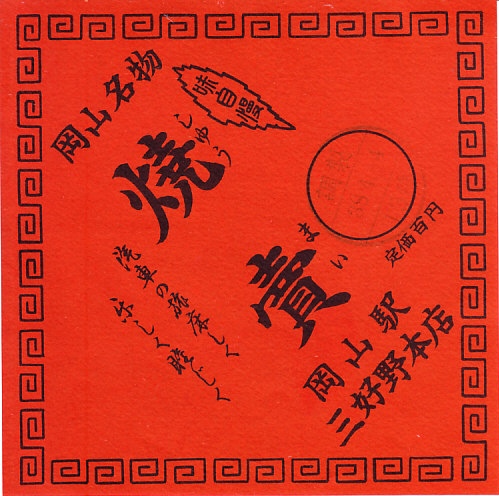 岡山名物
味自慢
しゅう
焼
まい
賣
汽車の旅楽しく
楽しく睦じく
定価百円
岡山駅
三好野本店